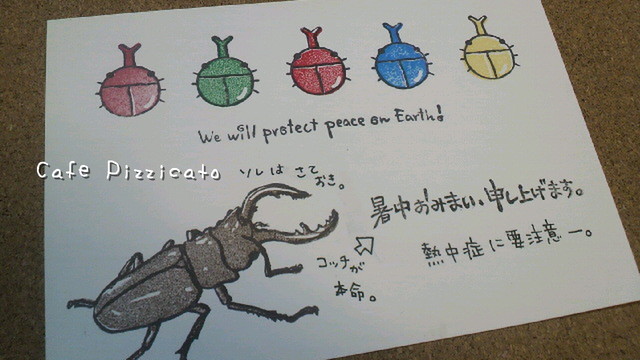 We will protect peace on Earth!
Cafe Pizzicato
ソレは さて
おき。
暑中おみまい、申し上げます。
コッチが
本命。
熱中症に要注意ー。